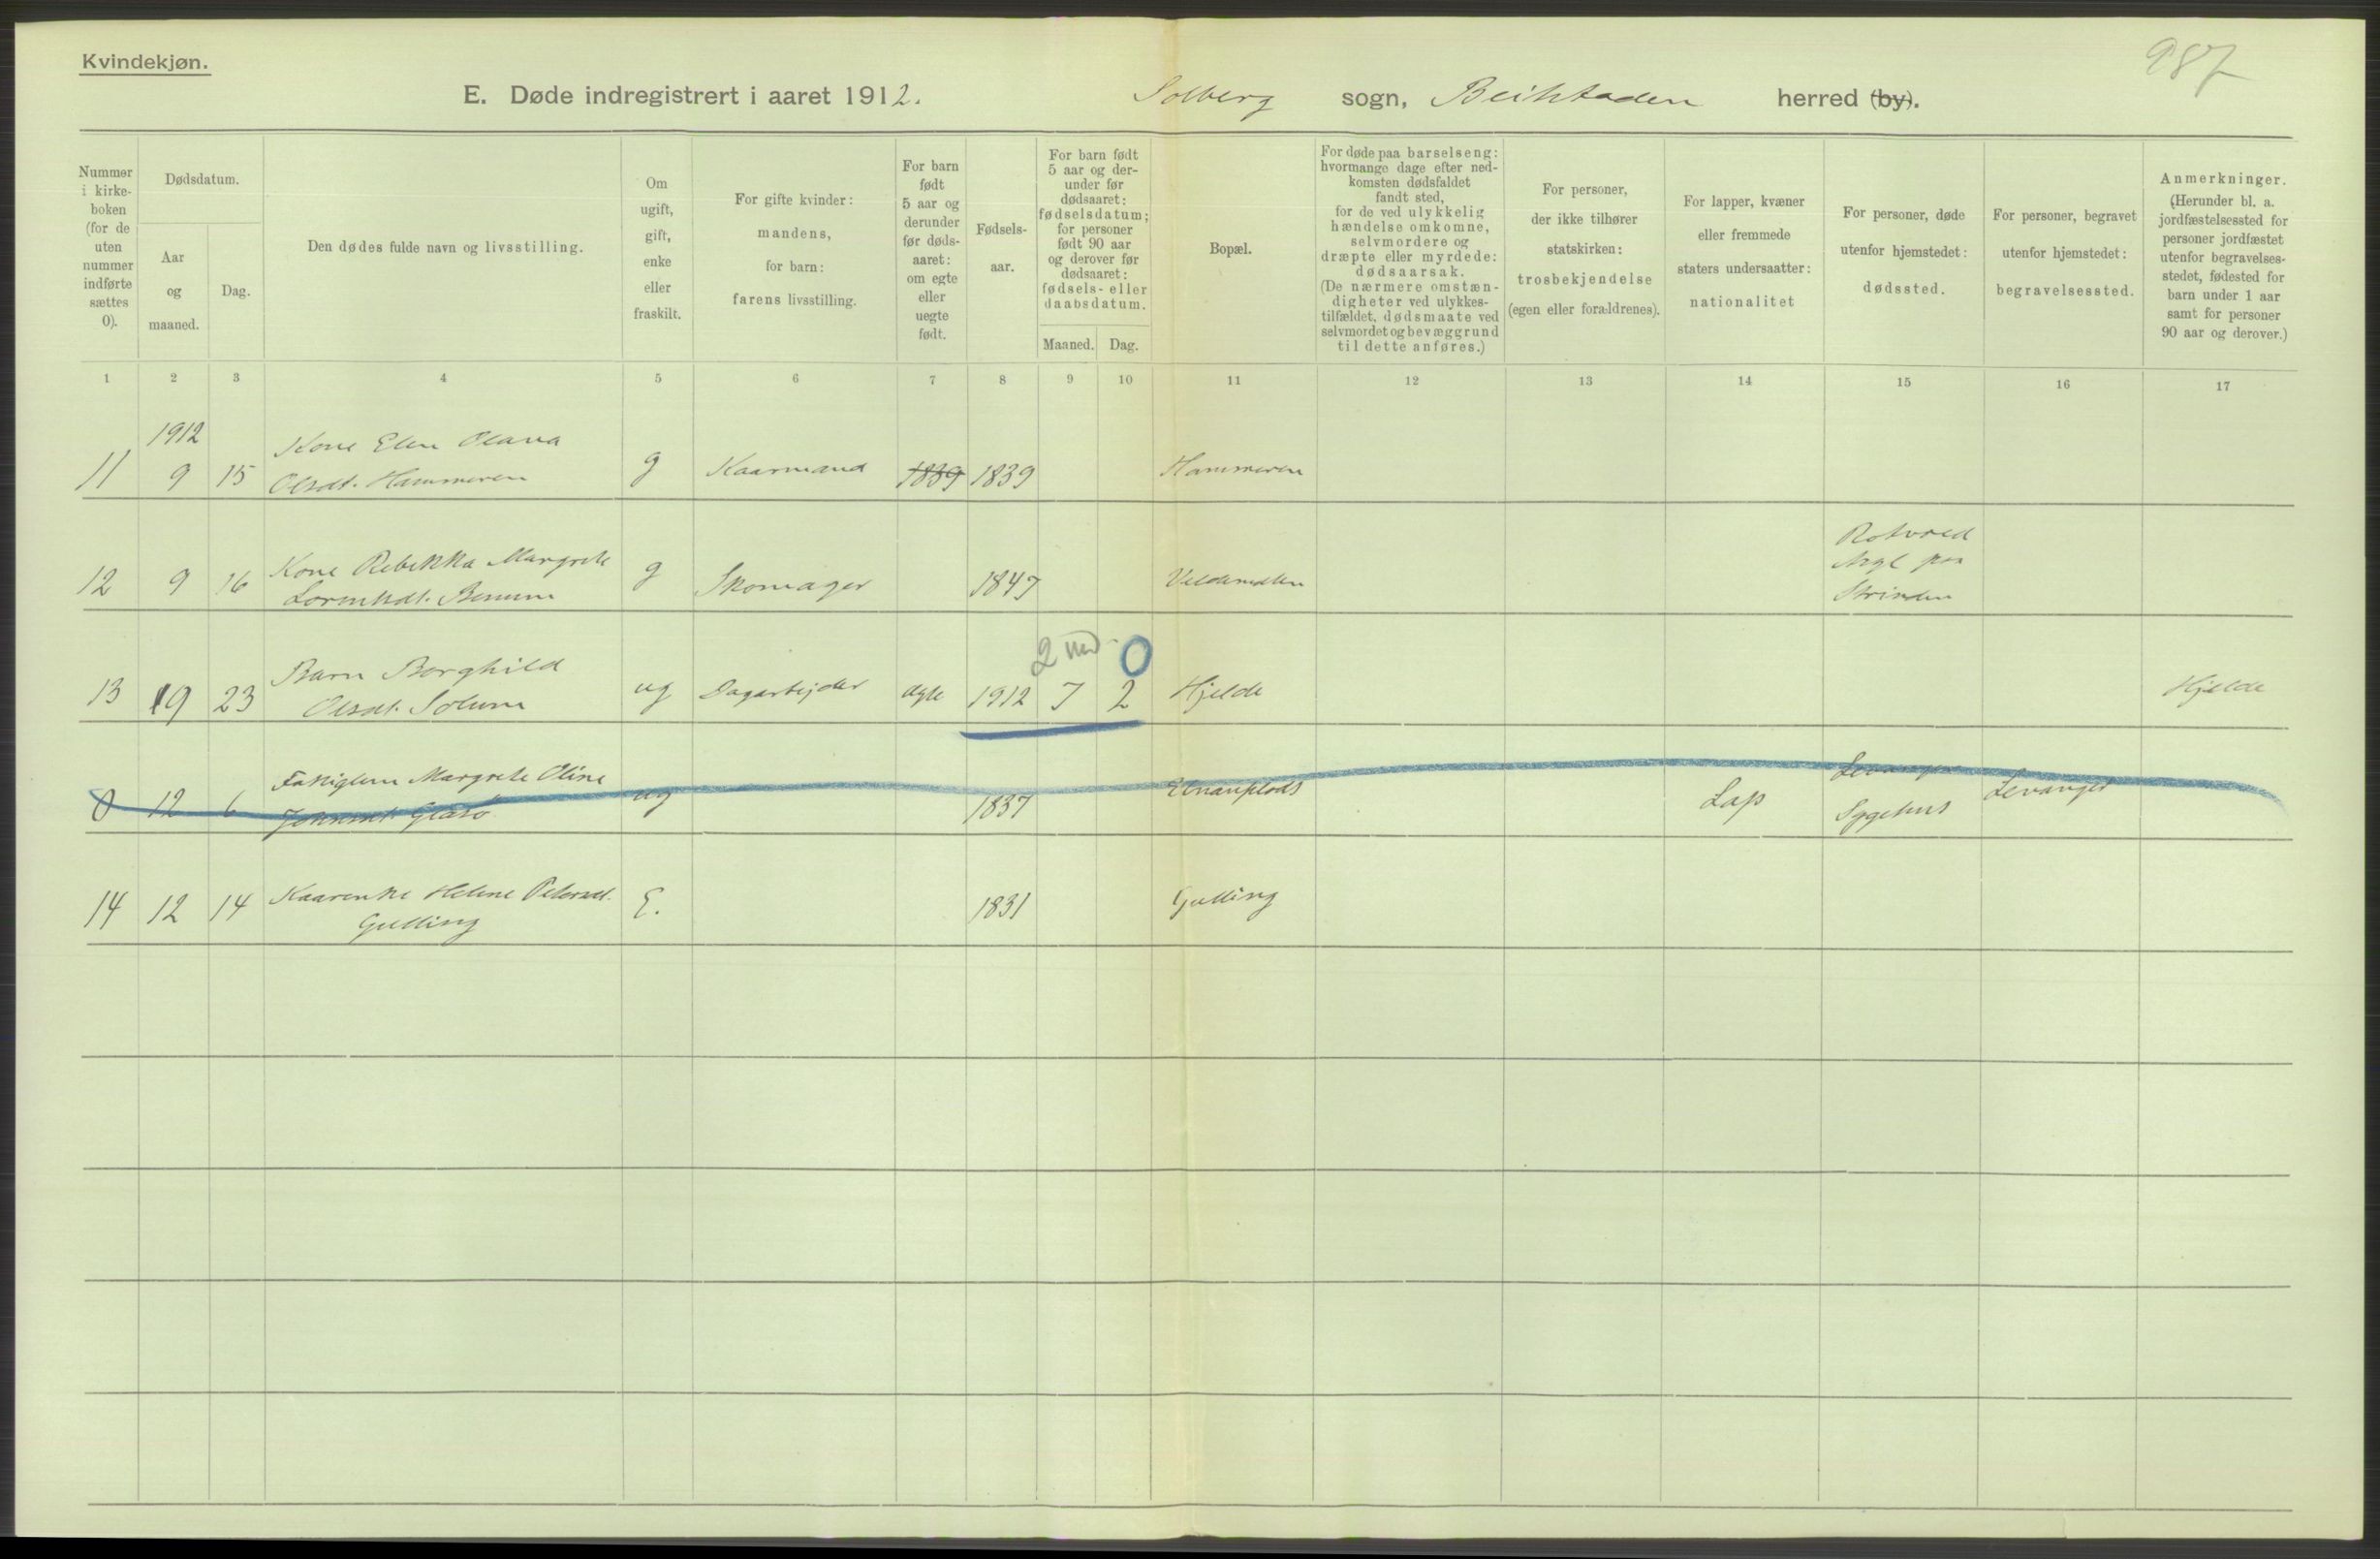 Kvindekjøn.
987
E. Døde indregistrert i aaret 1912. Solberg sogn, Beitstaden herred (by).
Nummer i kirke-boken (for de uten nummer indførte sættes 0).
Dødsdatum.
Aar og maaned.
Dag.
Den dødes fulde navn og livsstilling.
Om ugift, gift, enke eller fraskilt.
For gifte kvinder: mandens, for barn: farens livsstilling.
For barn født 5 aar og derunder før døds-aaret: om egte eller uegte født.
Fødsels-aar.
For barn født 5 aar og der-under før dødsaaret: fødselsdatum; for personer født 90 aar og derover før dødsaaret: fødsels- eller daabsdatum.
Maaned. Dag.
Bopæl.
For døde paa barselseng: hvormange dage efter ned-komsten dødsfaldet fandt sted, for de ved ulykkelig hændelse omkomne, selvmordere og dræpte eller myrdede: dødsaarsak. (De nærmere omstæn-digheter ved ulykkes-tilfældet, dødsmaate ved selvmordet og bevæggrund til dette anføres.)
For personer, der ikke tilhører statskirken: trosbekjendelse (egen eller forældrenes).
For lapper, kvæner eller fremmede staters undersaatter: nationalitet
For personer, døde utenfor hjemstedet: dødssted.
For personer, begravet utenfor hjemstedet: begravelsessted.
Anmerkninger. (Herunder bl. a. jordfæstelsessted for personer jordfæstet utenfor begravelses-stedet, fødested for barn under 1 aar samt for personer 90 aar og derover.)
1 2 3 4 5 6 7 8 9 10 11 12 13 14 15 16 17
1912
Kone Elen Olava
11 9 15 Olsdt. Hammeren g Kaarmand 1839 1839 Hammeren
Kone Rebekka Margrete
12 9 16 Benum g Skomager 1847 Strinden
2 md. 0
Barn Borghild
13 9 23 Olsdt. Solum ug Dagarbejder ægte 1912 7 2 Hjelde Hjelde
Margrete Oline Levanger
0 12 6 ug 1837 Lap Sygehus Levanger
14 12 14 Kaarenke Helene Petersdt. E. 1831 Gulling
Gulling